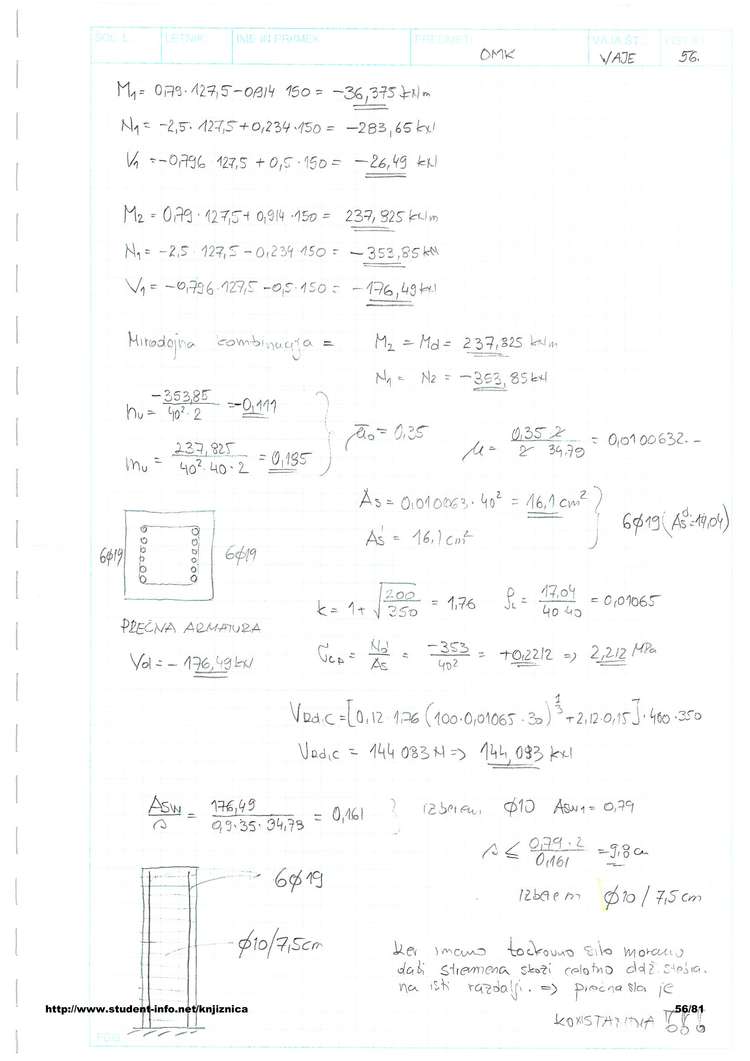 ŠOL. L. LETNIK IME IN PRIIMEK PREDMET VAJA ŠT.
OMK VAJE 56.
M₁ = 0,79·127,5 - 0,914 150 = -36,375 kNm
N₁ = -2,5·127,5 + 0,234·150 = -283,65 kN
V₁ = -0,796 127,5 + 0,5·150 = -26,49 kN
M₂ = 0,79·127,5 + 0,914·150 = 237,825 kNm
N₁ = -2,5 127,5 - 0,234·150 = -353,85 kN
V₁ = -0,796·127,5 - 0,5·150 = -176,49 kN
Mirodojna kombinacija = M₂ = Md = 237,825 kNm
N₁ = N₂ = -353,85 kN
nᵤ = -353,85 / 40²·2 = -0,111
mᵤ = 237,825 / 40²·40·2 = 0,185
μ̄₀ = 0,35 μ = 0,35 2 / 2 34,79 = 0,0100632..
As = 0,010063·40² = 16,1 cm²
As' = 16,1 cm²
6φ19 (Asᵈ = 17,04)
6φ19 6φ19
k = 1 + √(200/350) = 1,76 ρL = 17,04 / 40 40 = 0,01065
PREČNA ARMATURA
Vd = - 176,49 kN
σcp = Nd / As = -353 / 40² = +0,2212 => 2,212 MPa
VRd,C = [0,12·1,76 (100·0,01065·30)^1/3 + 2,12·0,15]·400·350
VRd,C = 144 083 N => 144,083 kN
Asw / s = 176,49 / 0,9·35·34,78 = 0,161 izberem φ10 Asw1 = 0,79
s ≤ 0,79·2 / 0,161 = 9,8 cm
Izberem φ10 / 7,5 cm
6φ19
φ10/7,5cm
Ker imamo točkovno silo moramo
dati stremena skozi celotno
na isti razdalji. => prečna sila je
KONSTANTNA !!!
http://www.student-info.net/knjiznica 56/81